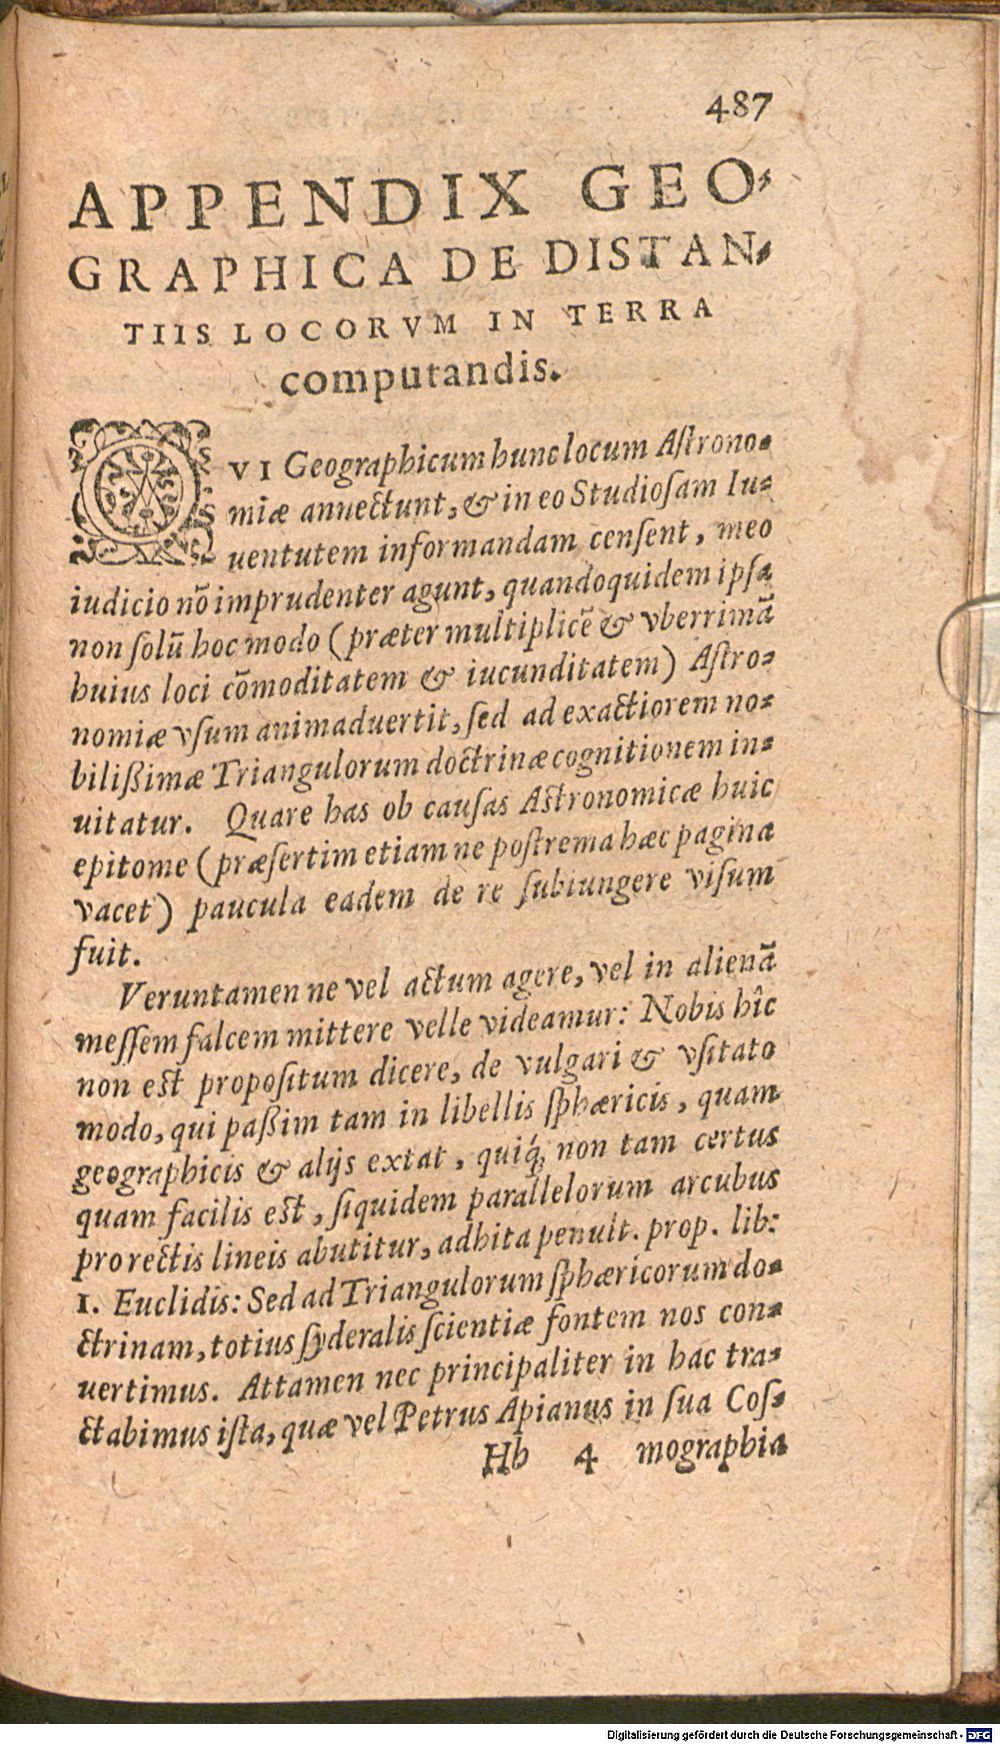 487
APPENDIX GEO-
GRAPHICA DE DISTAN-
TIIS LOCORVM IN TERRA
computandis.
QVI Geographicum hunc locum Aſtrono-
miæ annectunt, & in eo Studioſam Iu-
uentutem informandam cenſent, meo
iudicio nō imprudenter agunt, quandoquidem ipſa
non ſolū hoc modo (præter multiplicē & vberrimā
huius loci cōmoditatem & iucunditatem) Aſtro-
nomiæ vſum animaduertit, ſed ad exactiorem no-
bilißimæ Triangulorum doctrinæ cognitionem in-
uitatur. Quare has ob cauſas Aſtronomicæ huic
epitome (præſertim etiam ne poſtrema hæc pagina
vacet) paucula eadem de re ſubiungere viſum
fuit.
Veruntamen ne vel actum agere, vel in alienā
meſſem falcem mittere velle videamur: Nobis hîc
non eſt propoſitum dicere, de vulgari & vſitato
modo, qui paßim tam in libellis ſphæricis, quam
geographicis & alijs extat, quiq́; non tam certus
quam facilis eſt, ſiquidem parallelorum arcubus
pro rectis lineis abutitur, adhita penult. prop. lib:
1. Euclidis: Sed ad Triangulorum ſphæricorum do-
ctrinam, totius ſyderalis ſcientiæ fontem nos con-
uertimus. Attamen nec principaliter in hac tra-
ctabimus iſta, quæ vel Petrus Apianus in ſua Coſ-
Hh 4 mographia
Digitalisierung gefördert durch die Deutsche Forschungsgemeinschaft - DFG